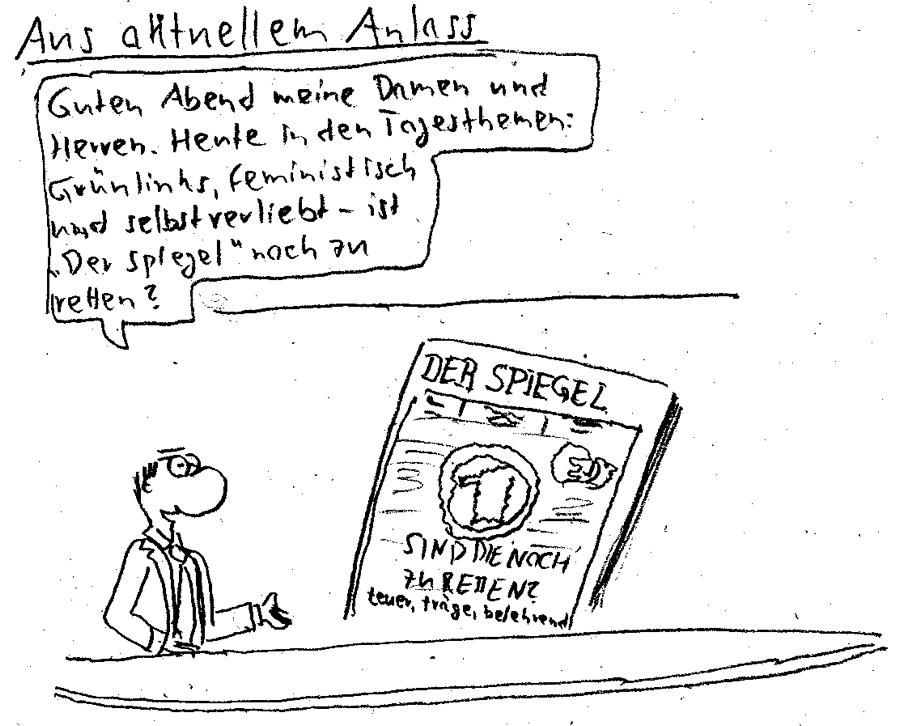 Aus aktuellem Anlass
Guten Abend meine Damen und
Herren. Heute in den Tagesthemen:
Grünlinks, feministisch
und selbstverliebt – ist
„Der Spiegel“ noch zu
retten?
DER SPIEGEL
SIND DIE NOCH
ZU RETTEN?
teuer, träge, belehrend